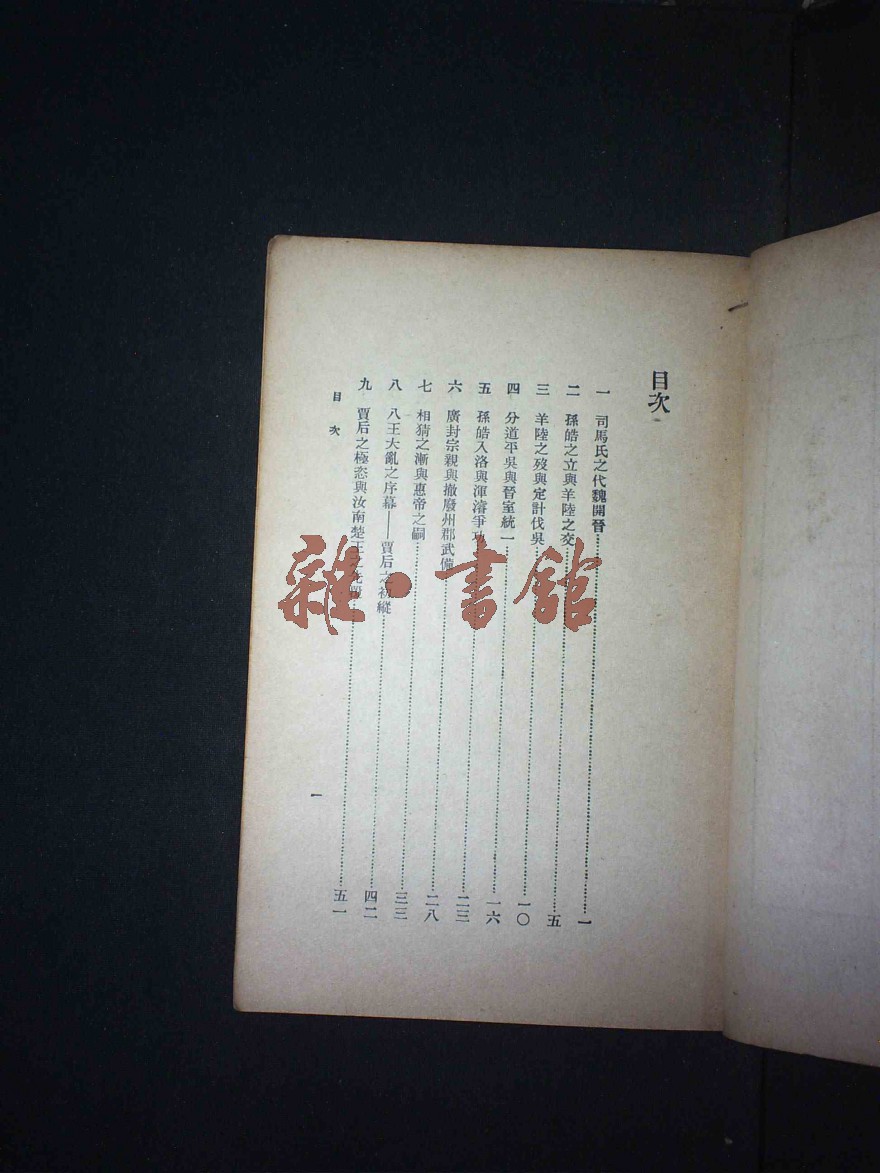 目次
一 司馬氏之代魏開晉……一
二 孫皓之立與羊陸之交……五
三 羊陸之歿與定計伐吳……一〇
四 分道平吳與晉室統一……一六
五 孫皓入洛與渾濬爭功……二三
六 廣封宗親與撤廢州郡武備……二八
七 相猜之漸與惠帝之嗣……三三
八 八王大亂之序幕——賈后之初縱……四二
九 賈后之極恣與汝南楚王之……五一
目次
一
雜·書館